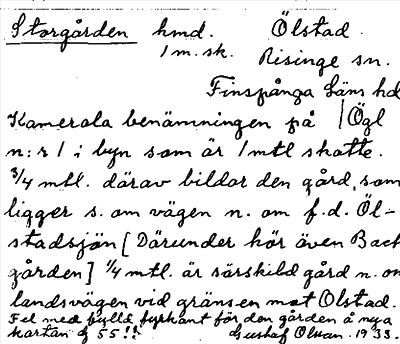 Storgården hmd. Ölstad
1 m. sk. Risinge sn.
Finspånga läns hd
Kamerala benämningen på /Ögl
n:r 1 i byn som är 1 mtl skatte.
3/4 mtl. därav bildar den gård, som
ligger s. om vägen n. om f.d. Öl-
stadsjön [Därunder hör även Back
gården] 1/4 mtl. är särskild gård n. om
landsvägen vid gränsen mot Olstad.
Fel med fylld fyrkant för den gården å nya
kartan 55!! Gustaf Olsan. 1933.